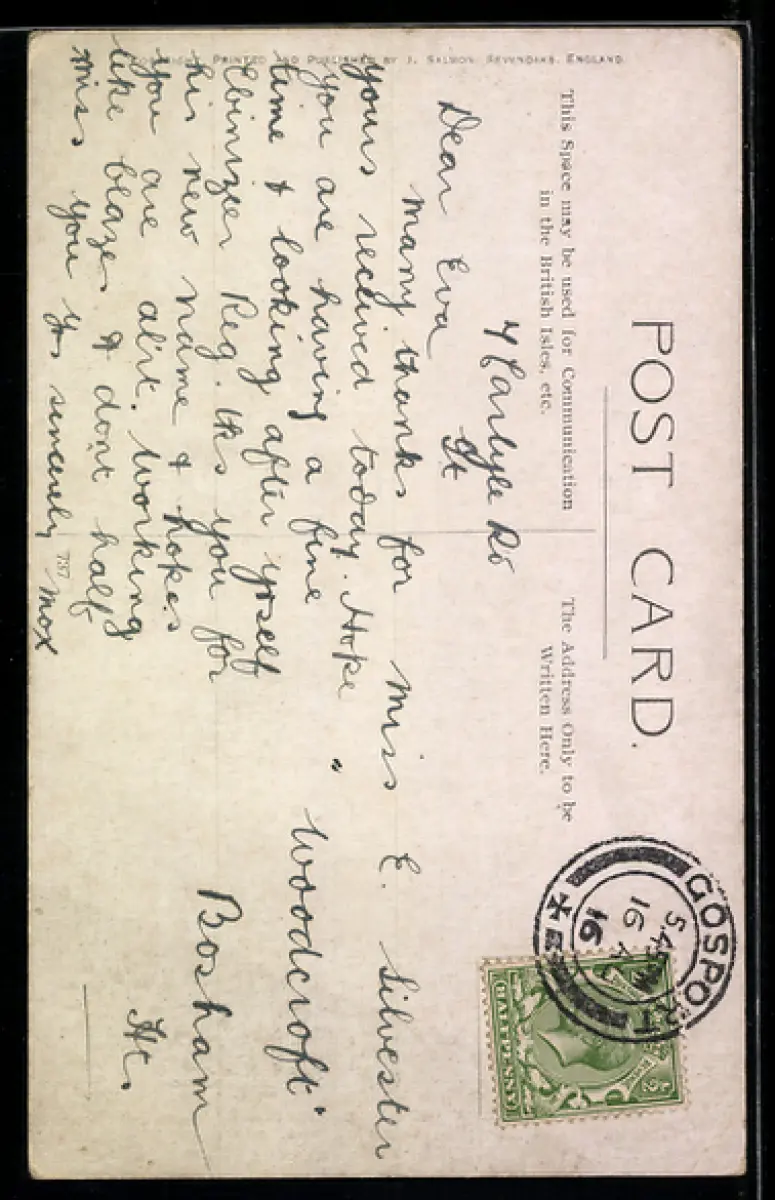 POST CARD.
This Space may be used for Communication
in the British Isles, etc.
The Address Only to be
Written Here.
COPYRIGHT. PRINTED AND PUBLISHED BY J. SALMON, SEVENOAKS, ENGLAND.
4 Carlyle Rd
Gt
Dear Eva
many thanks for
yours recieved today. Hope
you are having a fine
time & looking after yrself
Ebinizer Reg. tks you for
his new name & hopes
you are alrt. Working
like blazes & dont half
miss you Yrs sincerely
Mox
737
Miss E. Silvester
" Woodcroft "
Bosham
Ht.
GOSPORT
5.45 PM
16
16
HALFPENNY
½